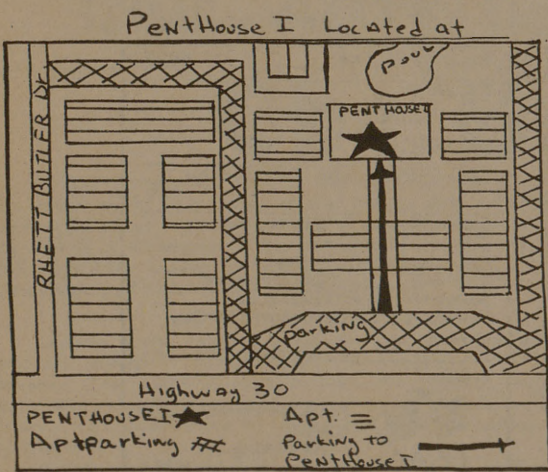 PentHouse I Located at
POOL
PENTHOUSE I
RHETT BUTLER Dr.
parking
Highway 30
PENTHOUSE I
Apt.
Aptparking
Parking to
PentHouse I